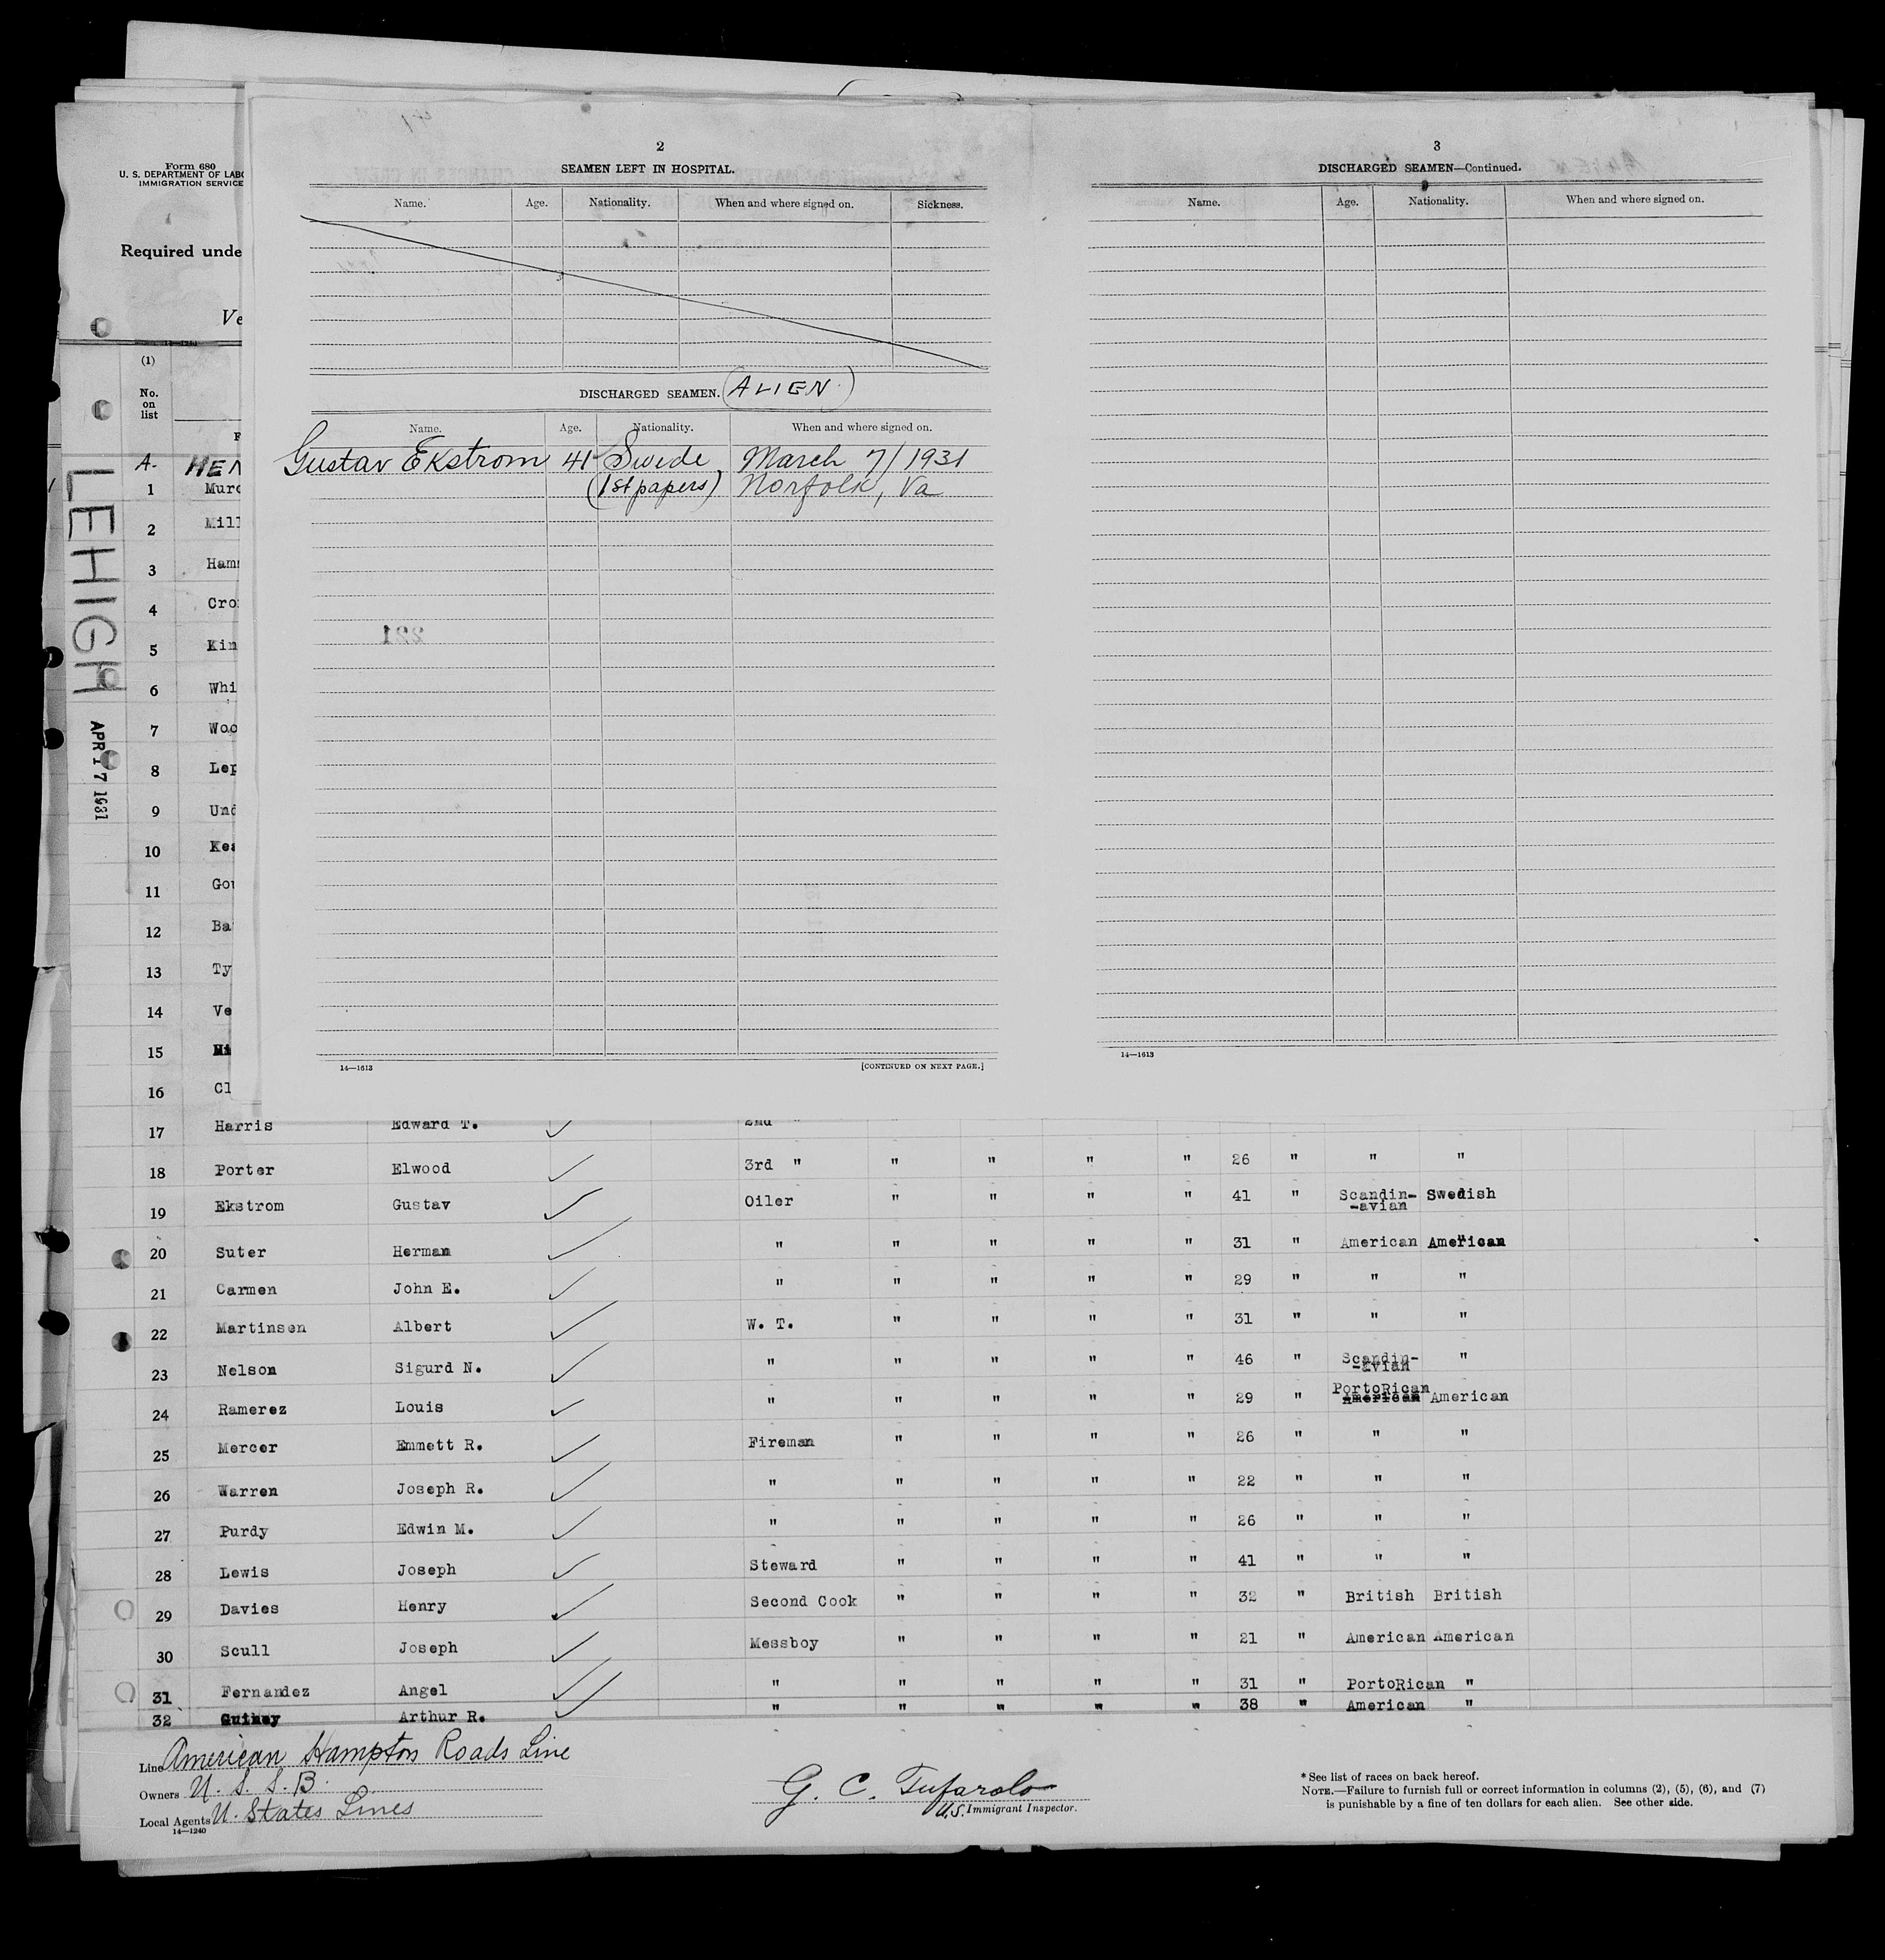 Form 680
U. S. DEPARTMENT OF LABO
IMMIGRATION SERVICE
Required unde
Ve
(1)
No.
on
list
F
A. HEN
LEHIGH
APR 17 1931
1 Murd
2 Mill
3 Ham
4 Cro
5 Kin
6 Whi
7 Woo
8 Lep
9 Und
10 Kea
11 Gou
12 Ba
13 Ty
14 Ve
15 Mi
16 Cl
2
SEAMEN LEFT IN HOSPITAL.
Name. Age. Nationality. When and where signed on. Sickness.
DISCHARGED SEAMEN. (ALIEN.)
Name. Age. Nationality. When and where signed on.
Gustav Ekstrom 41 Swede, March 7/1931
(1st papers) Norfolk, Va
221
14—1613 [CONTINUED ON NEXT PAGE.]
3
DISCHARGED SEAMEN—Continued.
Name. Age. Nationality. When and where signed on.
14—1613
17 Harris Edward T. 2nd "
18 Porter Elwood 3rd " " " " " 26 " " "
19 Ekstrom Gustav Oiler " " " " 41 " Scandin- Swedish
-avian
20 Suter Herman " " " " " 31 " American American
21 Carmen John E. " " " " " 29 " " "
22 Martinsen Albert W. T. " " " " 31 " " "
23 Nelson Sigurd N. " " " " " 46 " Scandin- "
-avian
PortoRican
24 Ramerez Louis " " " " " 29 " American American
25 Mercer Emmett R. Fireman " " " " 26 " " "
26 Warren Joseph R. " " " " " 22 " " "
27 Purdy Edwin M. " " " " " 26 " " "
28 Lewis Joseph Steward " " " " 41 " " "
29 Davies Henry Second Cook " " " " 32 " British British
30 Scull Joseph Messboy " " " " 21 " American American
31 Fernandez Angel " " " " " 31 " PortoRican "
32 Guiney Arthur R. " " " " " 38 " American "
Line American Hampton Roads Line
Owners U. S. S. B.
Local Agents U. States Lines
14—1240
G. C. Tufarolo
U.S. Immigrant Inspector.
* See list of races on back hereof.
NOTE.—Failure to furnish full or correct information in columns (2), (5), (6), and (7)
is punishable by a fine of ten dollars for each alien. See other side.